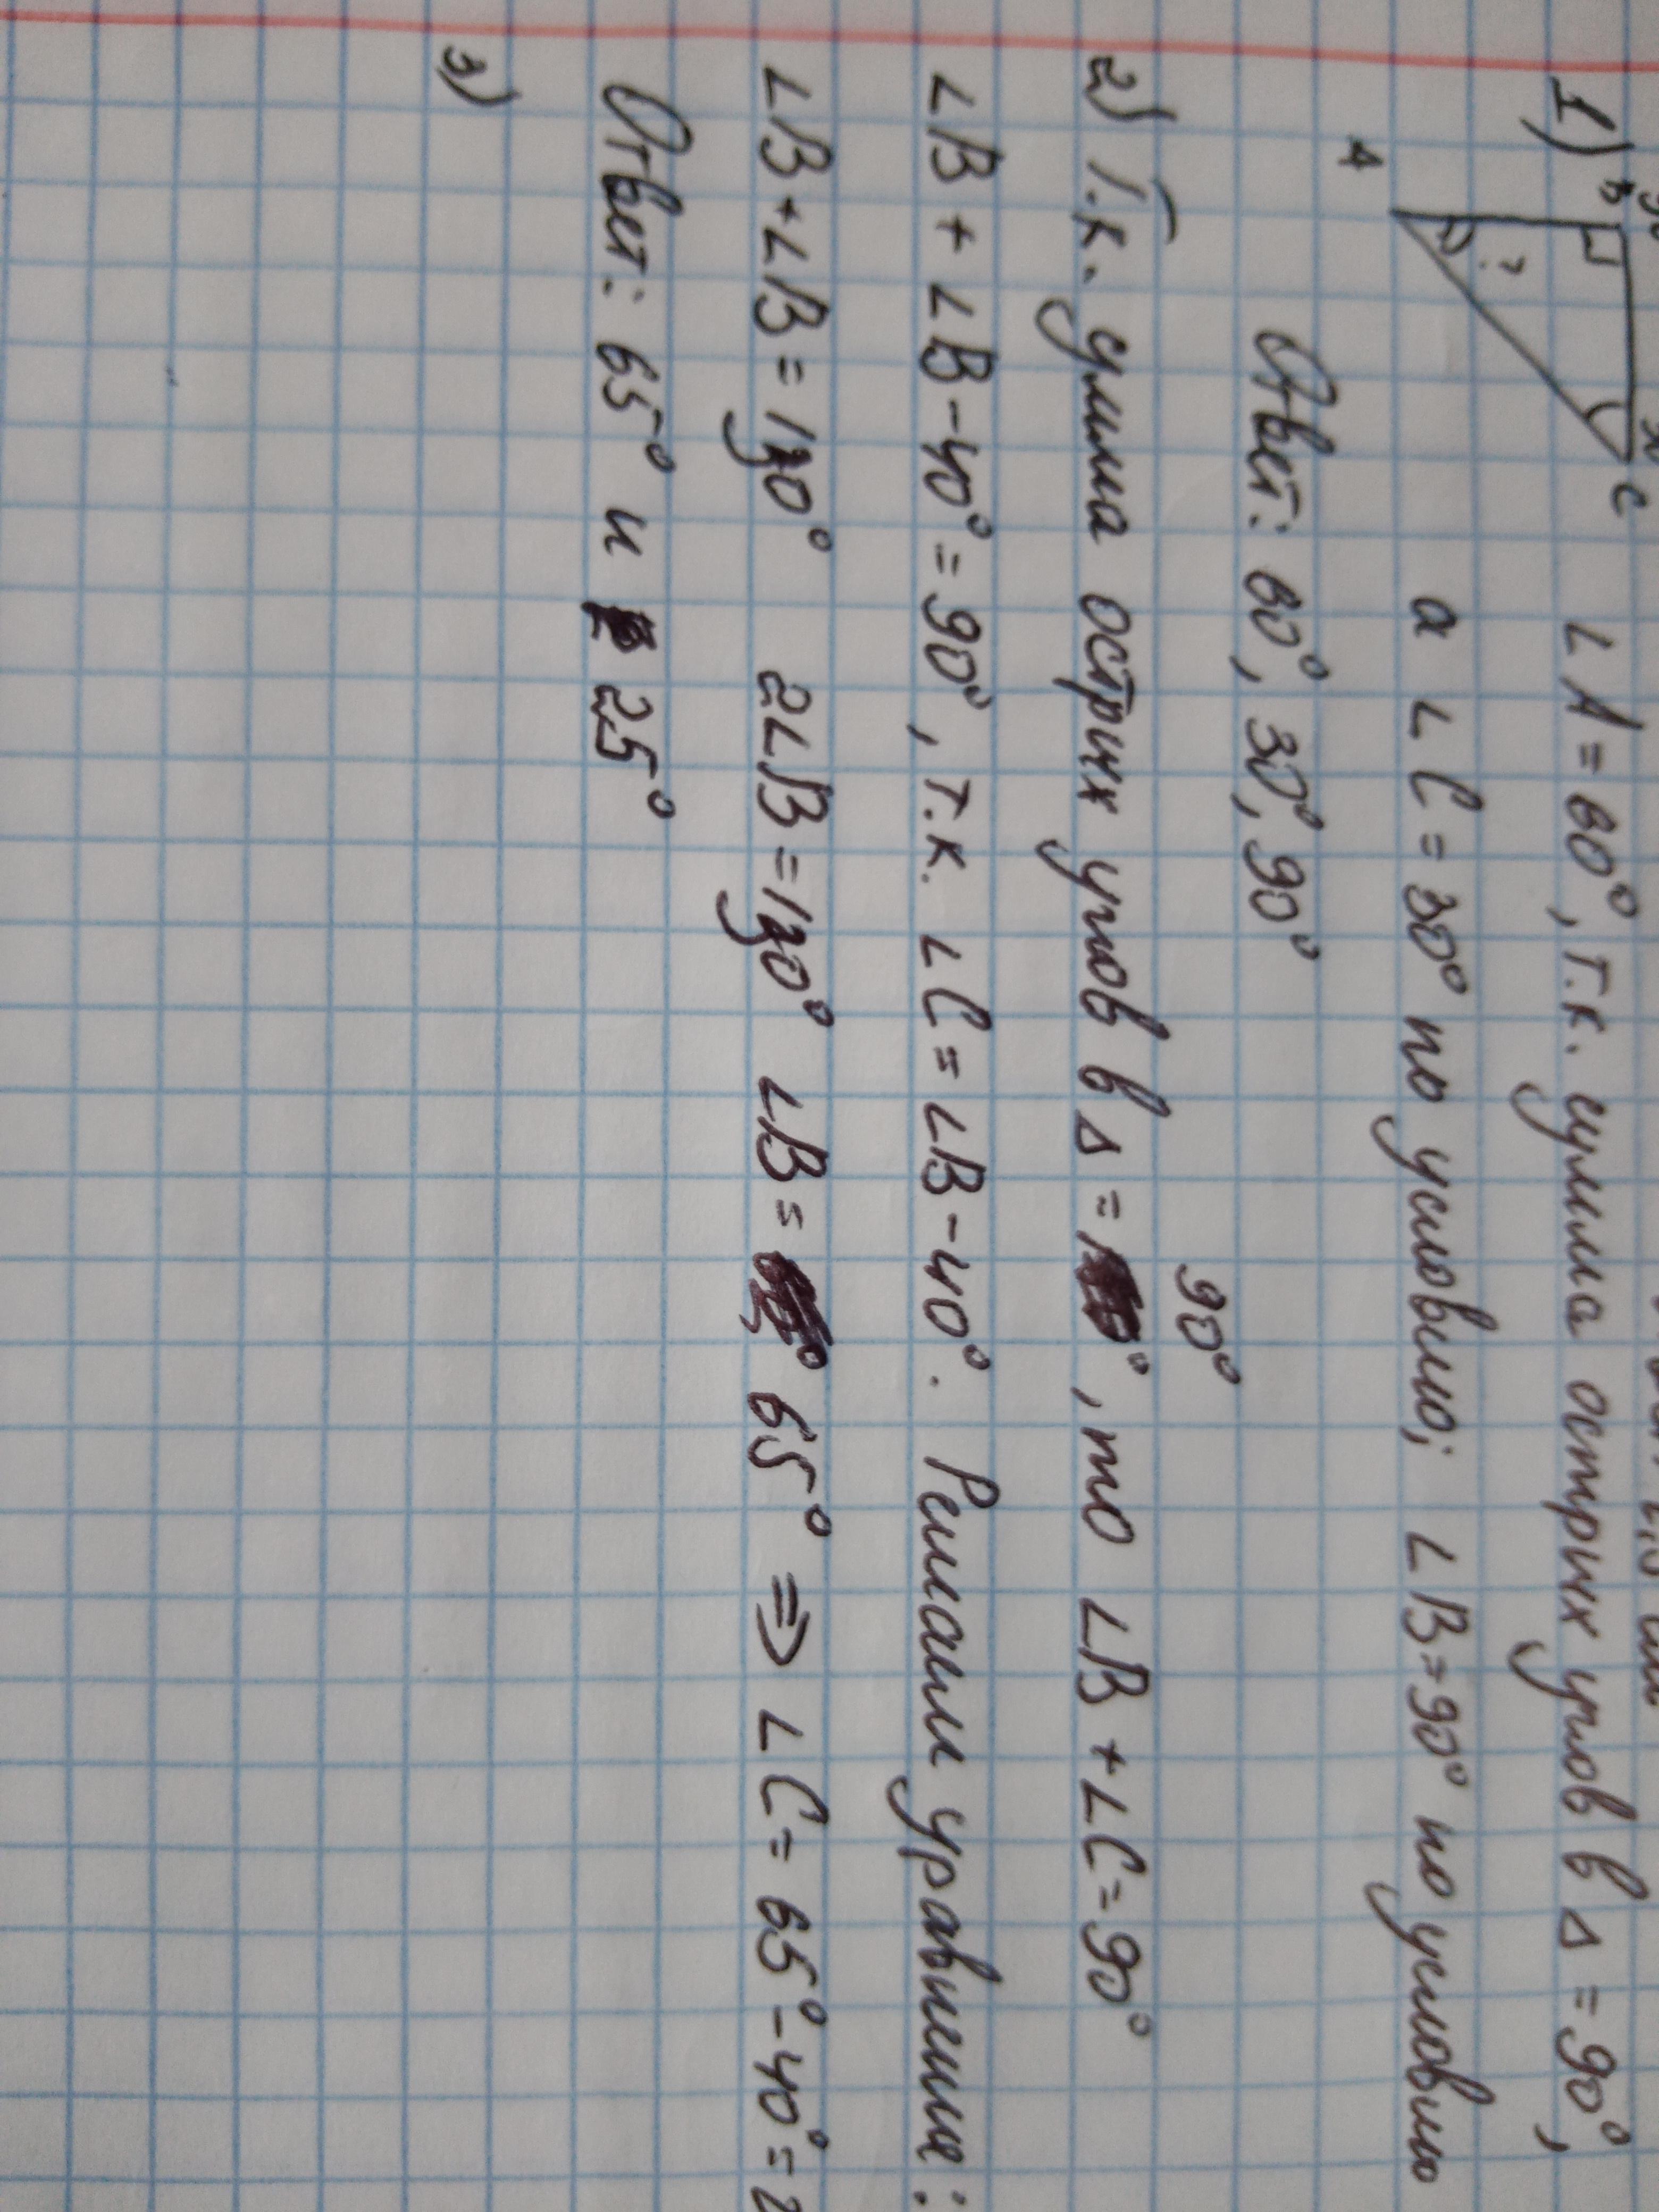 1) B C ∠A = 60°, т.к. сумма острых углов в Δ = 90°,
? А а ∠C = 30° по условию; ∠B = 90° по условию
Ответ: 60°, 30°, 90°
90°
2) Т.к. сумма острых углов в Δ = , то ∠B + ∠C = 90°
∠B + ∠B - 40° = 90°, т.к. ∠C = ∠B - 40°. Решаем уравнение:
∠B + ∠B = 130° 2∠B = 130° ∠B = 65° ⇒ ∠C = 65° - 40° = 2
Ответ: 65° и 25°
3)